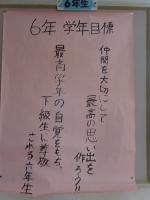 6年生
6年 学年目標
仲間を大切にして
最高の思い出を
作ろう!!
最高学年の自覚をもち、
下級生に尊敬
される六年生